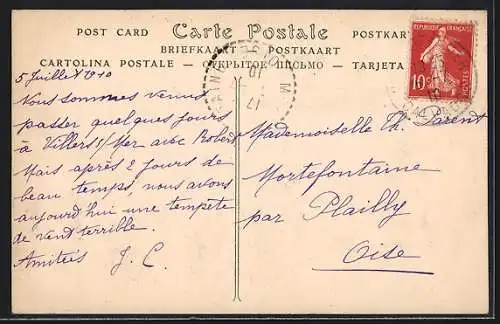 POST CARD Carte Postale POSTKARTE
BRIEFKAART POSTKAART
CARTOLINA POSTALE ОТКРЫТОЕ ПИСЬМО TARJETA
RÉPUBLIQUE FRANÇAISE
10c
POSTES
5 Juillet 1910
Nous sommes venus
passer quelques jours
à Villers s/ Mer avec Robert
Mais après 2 jours de
beau temps, nous avons
aujourd'hui une tempête
de vent terrible.
Amitiés J. C.
Mademoiselle Th. Parent
Mortefontaine
par Plailly
Oise